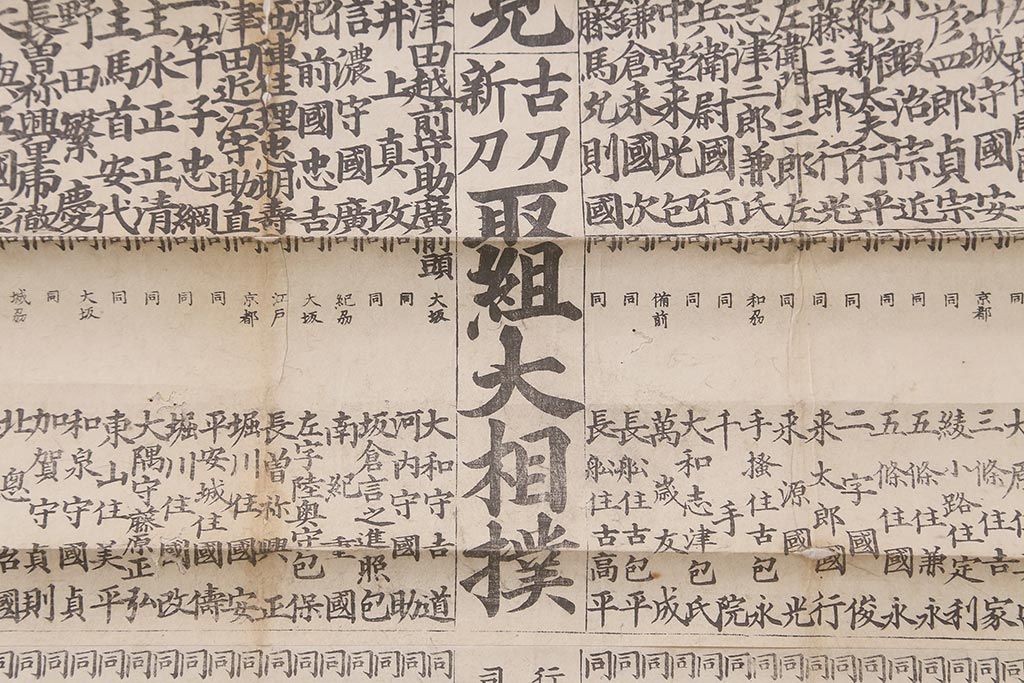 山城守國安
彦四郎貞宗
粟鍛治宗近
紀新太夫行平
藤三郎行光
左衛門三郎左
志津三郎兼氏
兵衛尉國行
中堂来光包
鎌倉来國次
藤馬允則國
古刀
新刀
取組大相撲
津田越前守助廣
井上真改
信濃守國廣
肥前國忠吉
西陣住埋忠明壽
津田近江守助直
一竿子忠綱
主水正正清
主馬首安代
野田繁慶
長曽祢興里虎徹
同
京都
同
同
同
同
同
同
和刕
同
同
備前
同
同
前頭
大坂
同
同
紀刕
大坂
江戸
京都
同
同
同
同
大坂
同
城刕
三條住吉家
綾小路住定利
五條住兼永
五條住國永
二字國俊
来太郎國行
来源國光
手掻住古包永
千手院
大和志津包氏
萬歳友成
長舩住古包平
長舩住古高平
大和守吉道
河内守國助
坂倉言之進照包
南紀重國
左字陸奥守包保
長曽祢興正
堀川住國安
平安城住國儔
堀川住國改
大隅守藤原正弘
東山住美平
和泉守國貞
加賀守貞則
北窓治國
同 同 同 同 同 同 同 同 同 同 同 同 同
行
司
同 同 同 同 同 同 同 同 同 同 同 同 同 同